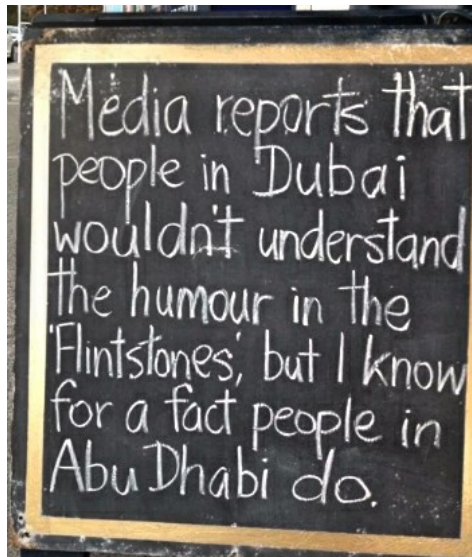 Media reports that
people in Dubai
wouldn't understand
the humour in the
'Flintstones', but I know
for a fact people in
Abu Dhabi do.